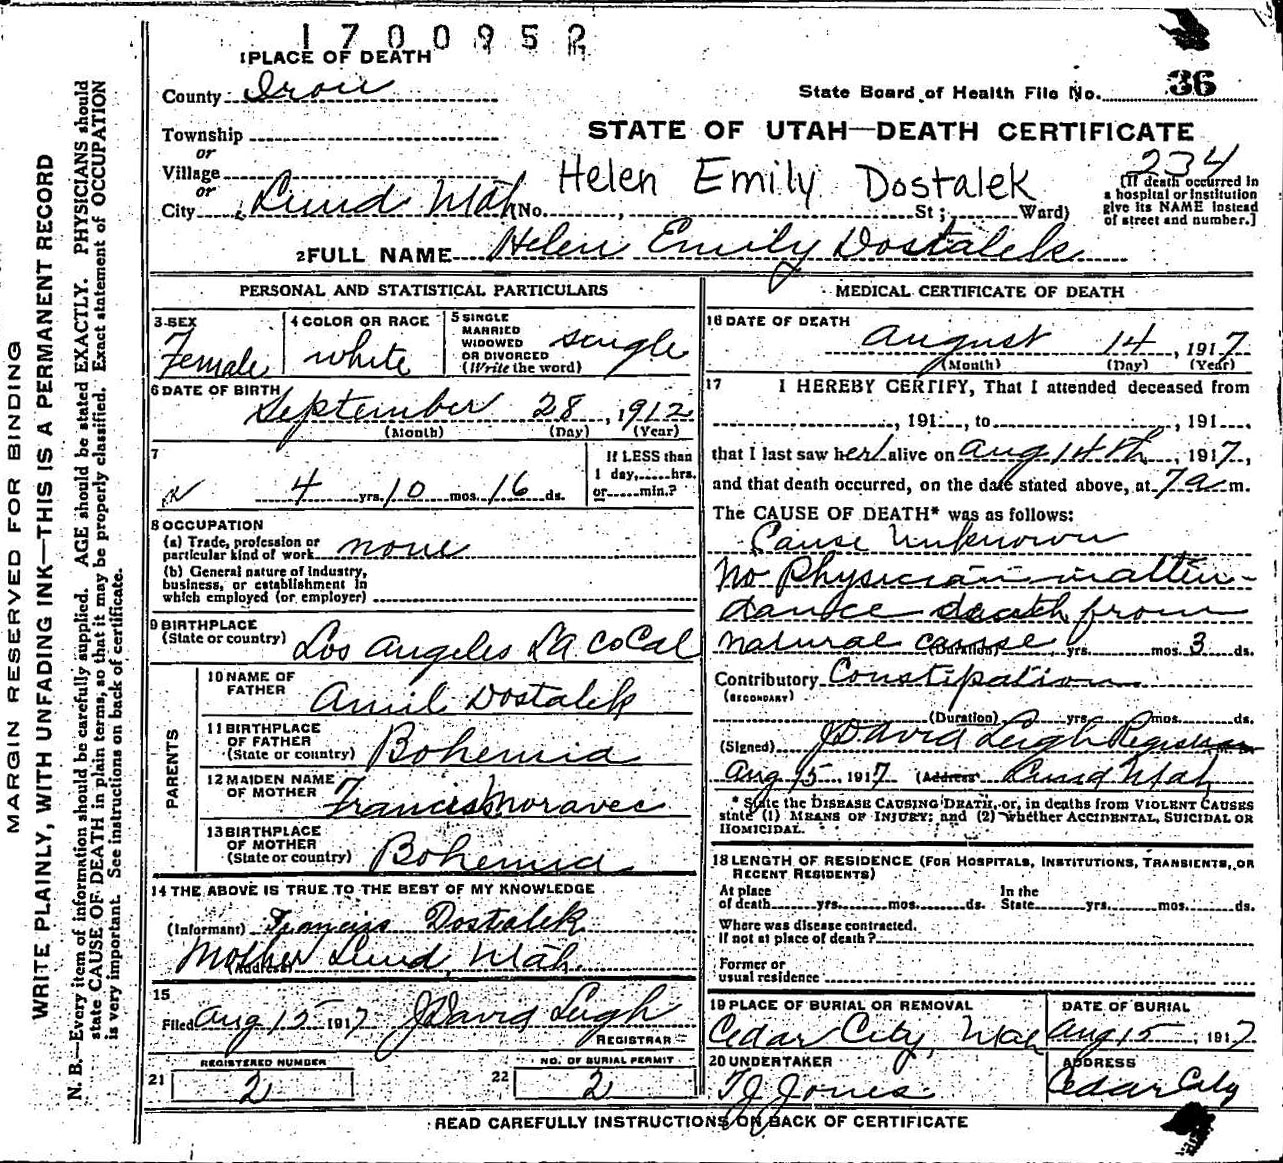 1700952
1 PLACE OF DEATH
County Iron
State Board of Health File No. 36
Township
STATE OF UTAH—DEATH CERTIFICATE
or
Village
or
Helen Emily Dostalek
234
[If death occurred in a hospital or institution give its NAME instead of street and number.]
City Lund Utah (No. , St; Ward)
2 FULL NAME Helen Emily Dostalek
PERSONAL AND STATISTICAL PARTICULARS
3 SEX Female
4 COLOR OR RACE white
5 SINGLE MARRIED WIDOWED OR DIVORCED (Write the word) single
6 DATE OF BIRTH September 28, 1912
(Month) (Day) (Year)
7
4 yrs. 10 mos. 16 ds.
If LESS than 1 day, hrs. or min.?
8 OCCUPATION
(a) Trade, profession or particular kind of work none
(b) General nature of industry, business, or establishment in which employed (or employer)
9 BIRTHPLACE (State or country) Los Angeles LA Co Cal
PARENTS
10 NAME OF FATHER Amil Dostalek
11 BIRTHPLACE OF FATHER (State or country) Bohemia
12 MAIDEN NAME OF MOTHER Francis Moravec
13 BIRTHPLACE OF MOTHER (State or country) Bohemia
14 THE ABOVE IS TRUE TO THE BEST OF MY KNOWLEDGE
(Informant) Francis Dostalek
(Address) Mother Lund, Utah
15
Filed Aug 15 1917 J David Leigh
REGISTRAR
21 REGISTERED NUMBER 2
22 NO. OF BURIAL PERMIT 2
MEDICAL CERTIFICATE OF DEATH
16 DATE OF DEATH
August 14, 1917
(Month) (Day) (Year)
17 I HEREBY CERTIFY, That I attended deceased from
, 191 , to , 191 ,
that I last saw her alive on Aug 14th, 1917,
and that death occurred, on the date stated above, at 7 a m.
The CAUSE OF DEATH* was as follows:
Cause Unknown
No Physician in atten-
dance death from
natural cause (Duration) yrs. mos. 3 ds.
Contributory Constipation
(SECONDARY)
(Duration) yrs. mos. ds.
(Signed) J David Leigh Registrar
Aug 15 1917 (Address Lund Utah
* State the DISEASE CAUSING DEATH, or, in deaths from VIOLENT CAUSES
state (1) MEANS OF INJURY; and (2) whether ACCIDENTAL, SUICIDAL OR
HOMICIDAL.
18 LENGTH OF RESIDENCE (FOR HOSPITALS, INSTITUTIONS, TRANSIENTS, OR
RECENT RESIDENTS)
At place of death yrs. mos. ds. In the State yrs. mos. ds.
Where was disease contracted.
If not at place of death?
Former or
usual residence
19 PLACE OF BURIAL OR REMOVAL Cedar City, Utah
DATE OF BURIAL Aug 15, 1917
20 UNDERTAKER T J Jones
ADDRESS Cedar City
READ CAREFULLY INSTRUCTIONS ON BACK OF CERTIFICATE
MARGIN RESERVED FOR BINDING
WRITE PLAINLY, WITH UNFADING INK—THIS IS A PERMANENT RECORD
N. B.—Every item of information should be carefully supplied. AGE should be stated EXACTLY. PHYSICIANS should
state CAUSE OF DEATH in plain terms, so that it may be properly classified. Exact statement of OCCUPATION
is very important. See instructions on back of certificate.